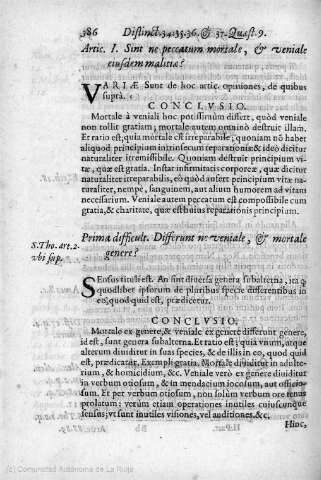 386 Distinct. 34. 35. 36. & 37. Quæst. 9.
Artic. I. Sint ne peccatum mortale, & veniale
eiusdem malitiæ?
VARIÆ Sunt de hoc artic. opiniones, de quibus
suprà.
CONCLVSIO.
Mortale à veniali hoc potissimùm differt, quòd veniale
non tollit gratiam; mortale autem omninò destruit illam.
Et ratio est, quia mortale est irreparabile, quoniam nō habet
aliquod principium intrinsecum reparationis & ideò dicitur
naturaliter irremissibile. Quoniam destruit principium vi-
tæ, quæ est gratia. Instar infirmitatis corporeæ, quæ dicitur
naturaliter irreparabilis, eò quòd aufert principium vitæ na-
turaliter, nempè, sanguinem, aut alium humorem ad vitam
necessarium. Veniale autem peccatum est compossibile cum
gratia, & charitate, quæ est huius reparationis principium.
S. Tho. art. 2.
vbi sup.
Prima difficult. Differunt ne veniale, & mortale
genere?
Sensus tituli est. An sint diuersa genera subalterna, ita q
quodlibet ipsorum de pluribus specie differentibus in
eo, quod quid est, prædicetur.
CONCLVSIO.
Mortale ex genere, & veniale ex genere differunt genere,
id est, sunt genera subalterna. Et ratio est; quia vnum, atque
alterum diuiditur in suas species, & de illis in eo, quod quid
est, prædicatur. Exempli gratia. Mortale diuiditur in adulte-
rium, & homicidium, &c. Veniale verò ex genere diuiditur
in verbum otiosum, & in mendacium iocosum, aut officio-
sum. Et per verbum otiosum, non solùm verbum ore tenus
prolatum: verùm etiam operationes inutiles cuiuscunque
sensus; vt sunt inutiles visiones, vel auditiones, &c.
Hinc,
(c) Comunidad Autónoma de La Rioja